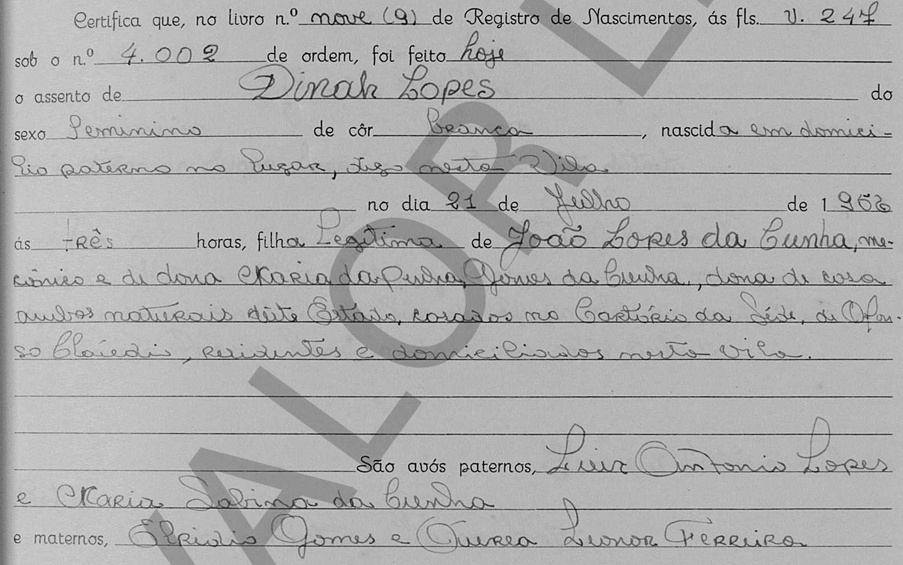 Certifica que, no livro n.º nove (9) de Registro de Nascimentos, ás fls. V. 247
sob o n.º 4.002 de ordem, foi feito hoje
o assento de Dinah Lopes do
sexo Feminino de côr branca, nascida em domici-
lio paterno no lugar, digo nesta Vila
no dia 21 de Julho de 196
ás três horas, filha Legitima de João Lopes da Cunha, me-
cânico e de dona Maria da Penha Gomes da Cunha, dona de casa
ambos naturais dêste Estado, casados no Cartório da Séde, de Afon-
so Claúdio, residentes e domiciliados nesta Vila.
São avós paternos, Luiz Antonio Lopes
e Maria Sabina da Cunha
e maternos, Gomes e Aurea Leonor Ferreira
VALOR